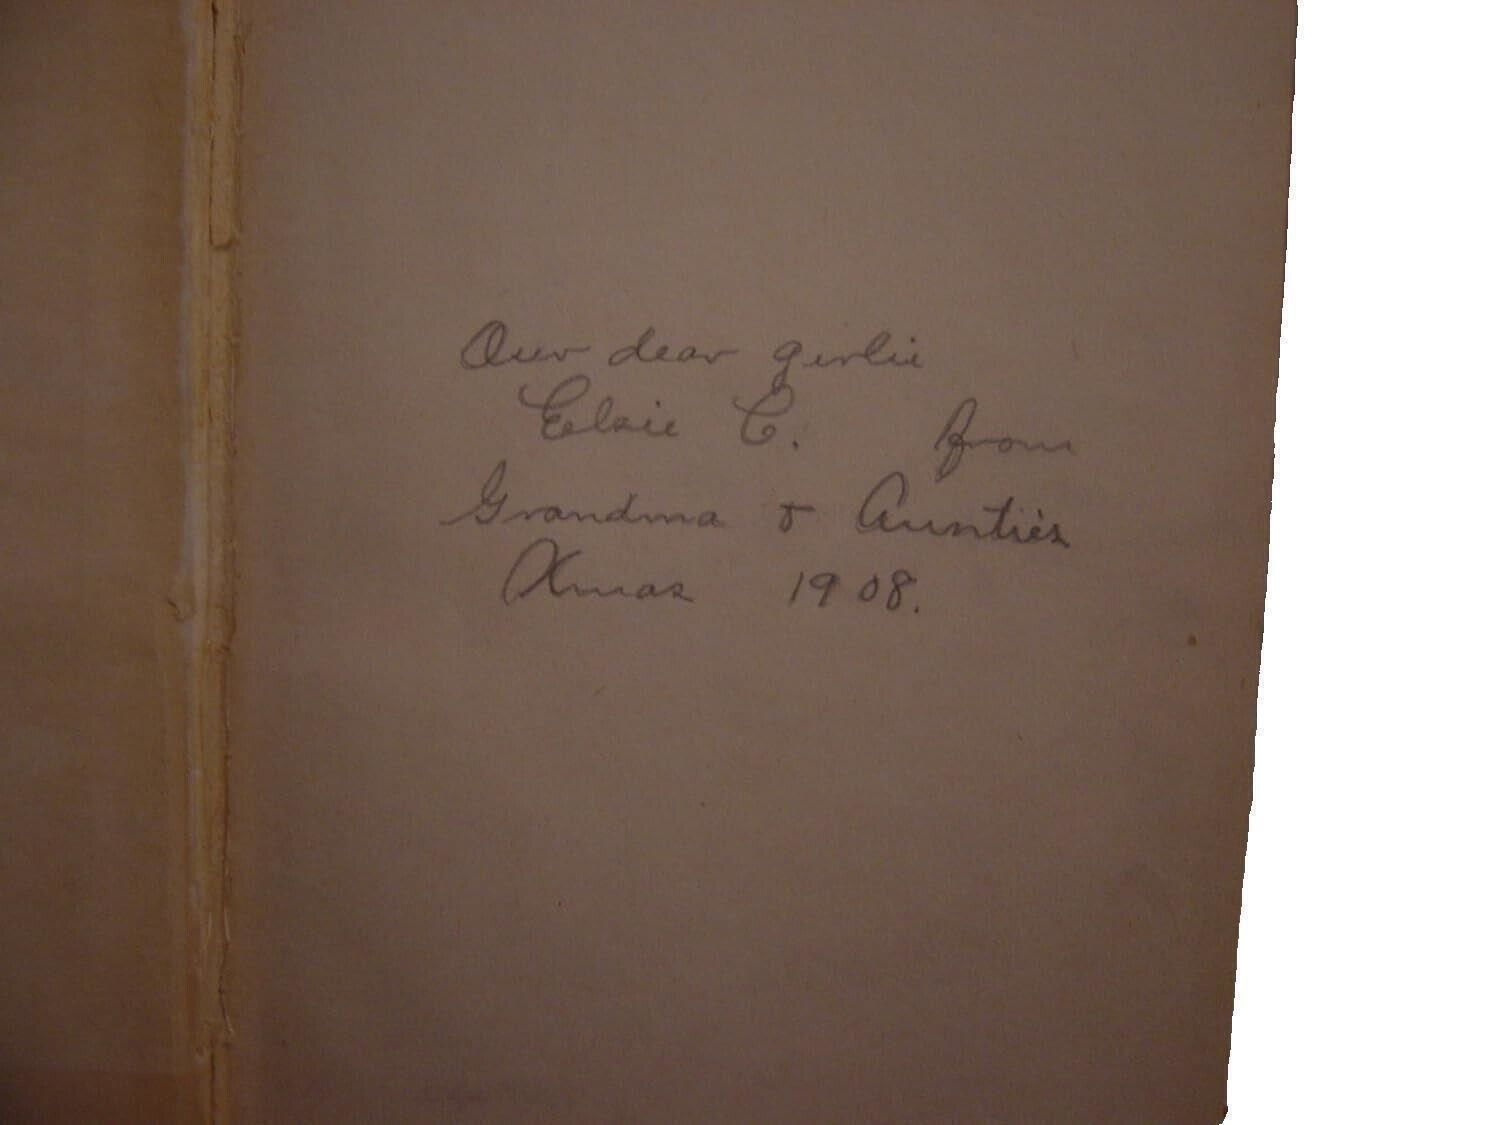 Our dear girlie
Elsie C. from
Grandma & Auntie's
Xmas 1908.